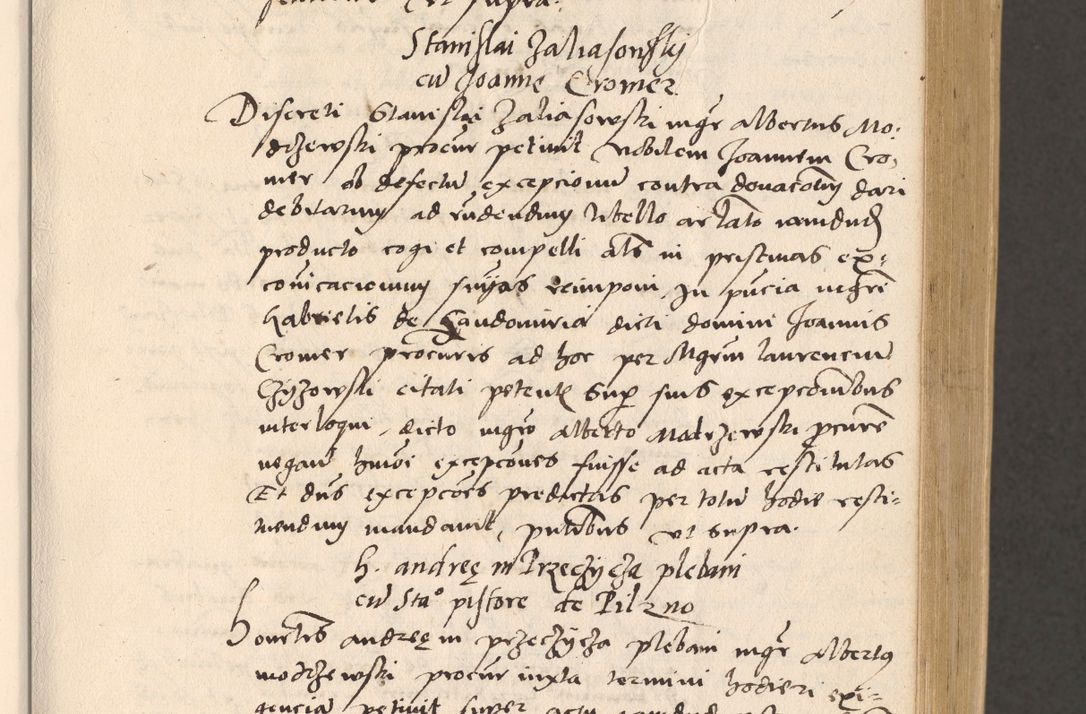 ut supra.
Stanislai Zaliasowsky
cū Joanne Cromer
Discreti Stanislai Zaliasowski mgr Albertus Mo-
drzewski procur petivit Nobilem Joannem Cro-
mer ob defectū excepcionū contra donacōm dari
debitarum ad eudendum libello articlato
producto cogi et compelli als in pristinas ex-
cōicacionum reimponi. In pñcia mgri
Gabrielis de Sandomiria dicti domini Joannis
Cromer procuris ad hoc per Mgrm Laurenciū
Czyzowski citati petentis super suis excepcōnibus
interloqui, dicto mgro Alberto Modrzewski pcure
negan hmōi excepcōnes fuisse ad acta restitutas
Et dns excepcōes predictas per totū hodie resti-
nendum mandavit, pntibus ut supra.
h. andreę in Przeczycza plebani
cū Stao pistore de Pilzno
Honlis andreę in przeczycza plebani mgr Albertus
modrzewski procur iuxta termini hodierni exi-
gencia petivit super